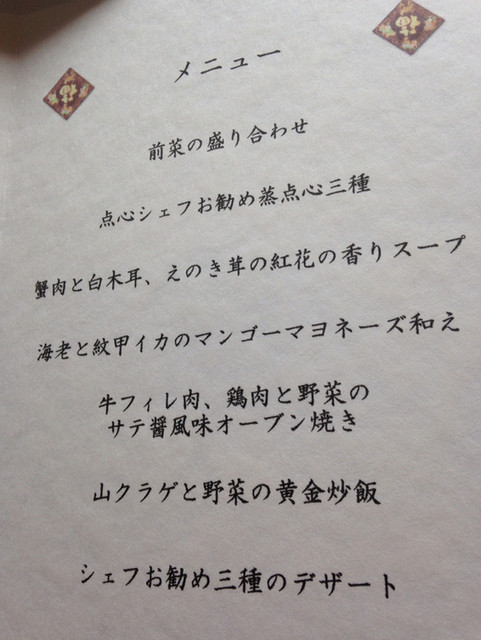 福
福
メニュー
前菜の盛り合わせ
点心シェフお勧め蒸点心三種
蟹肉と白木耳、えのき茸の紅花の香りスープ
海老と紋甲イカのマンゴーマヨネーズ和え
牛フィレ肉、鶏肉と野菜の
サテ醤風味オーブン焼き
山クラゲと野菜の黄金炒飯
シェフお勧め三種のデザート